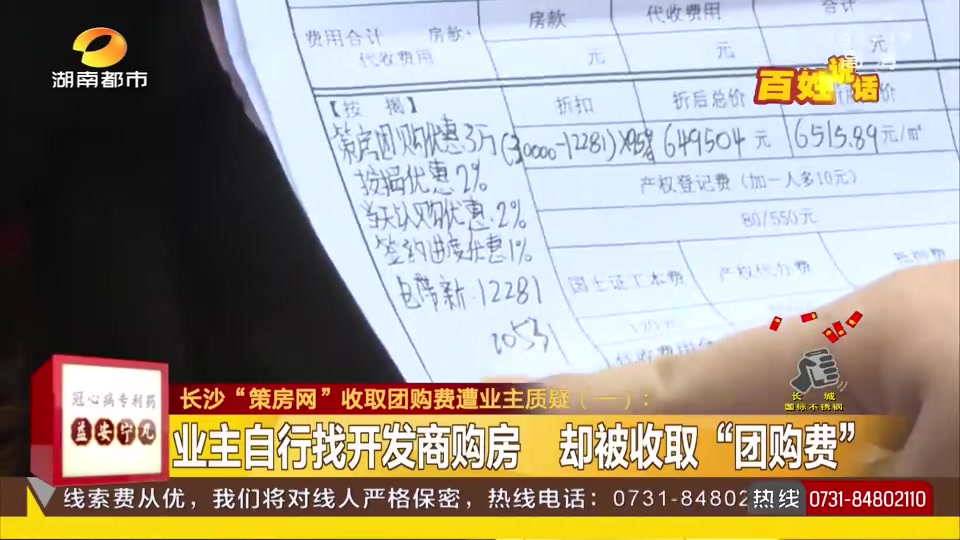 房款
代收费用
合计
费用合计
房款+
代收费用
元
元
元
湖南都市
百姓说话
【按 揭】
折扣
折后总价
策房团购优惠3万
(30000-12281)×95%
649504 元
6515.89元/㎡
按揭优惠2%
产权登记费(加一人多10元)
当天认购优惠2%
80/550元
签约进度优惠1%
国土证工本费
产权代办费
老带新12281
长城
国标不锈钢
冠心病专利药
益安宁丸
长沙“策房网”收取团购费遭业主质疑(一):
业主自行找开发商购房 却被收取“团购费”
线索费从优,我们将对线人严格保密,热线电话:0731-8480
热线 0731-84802110